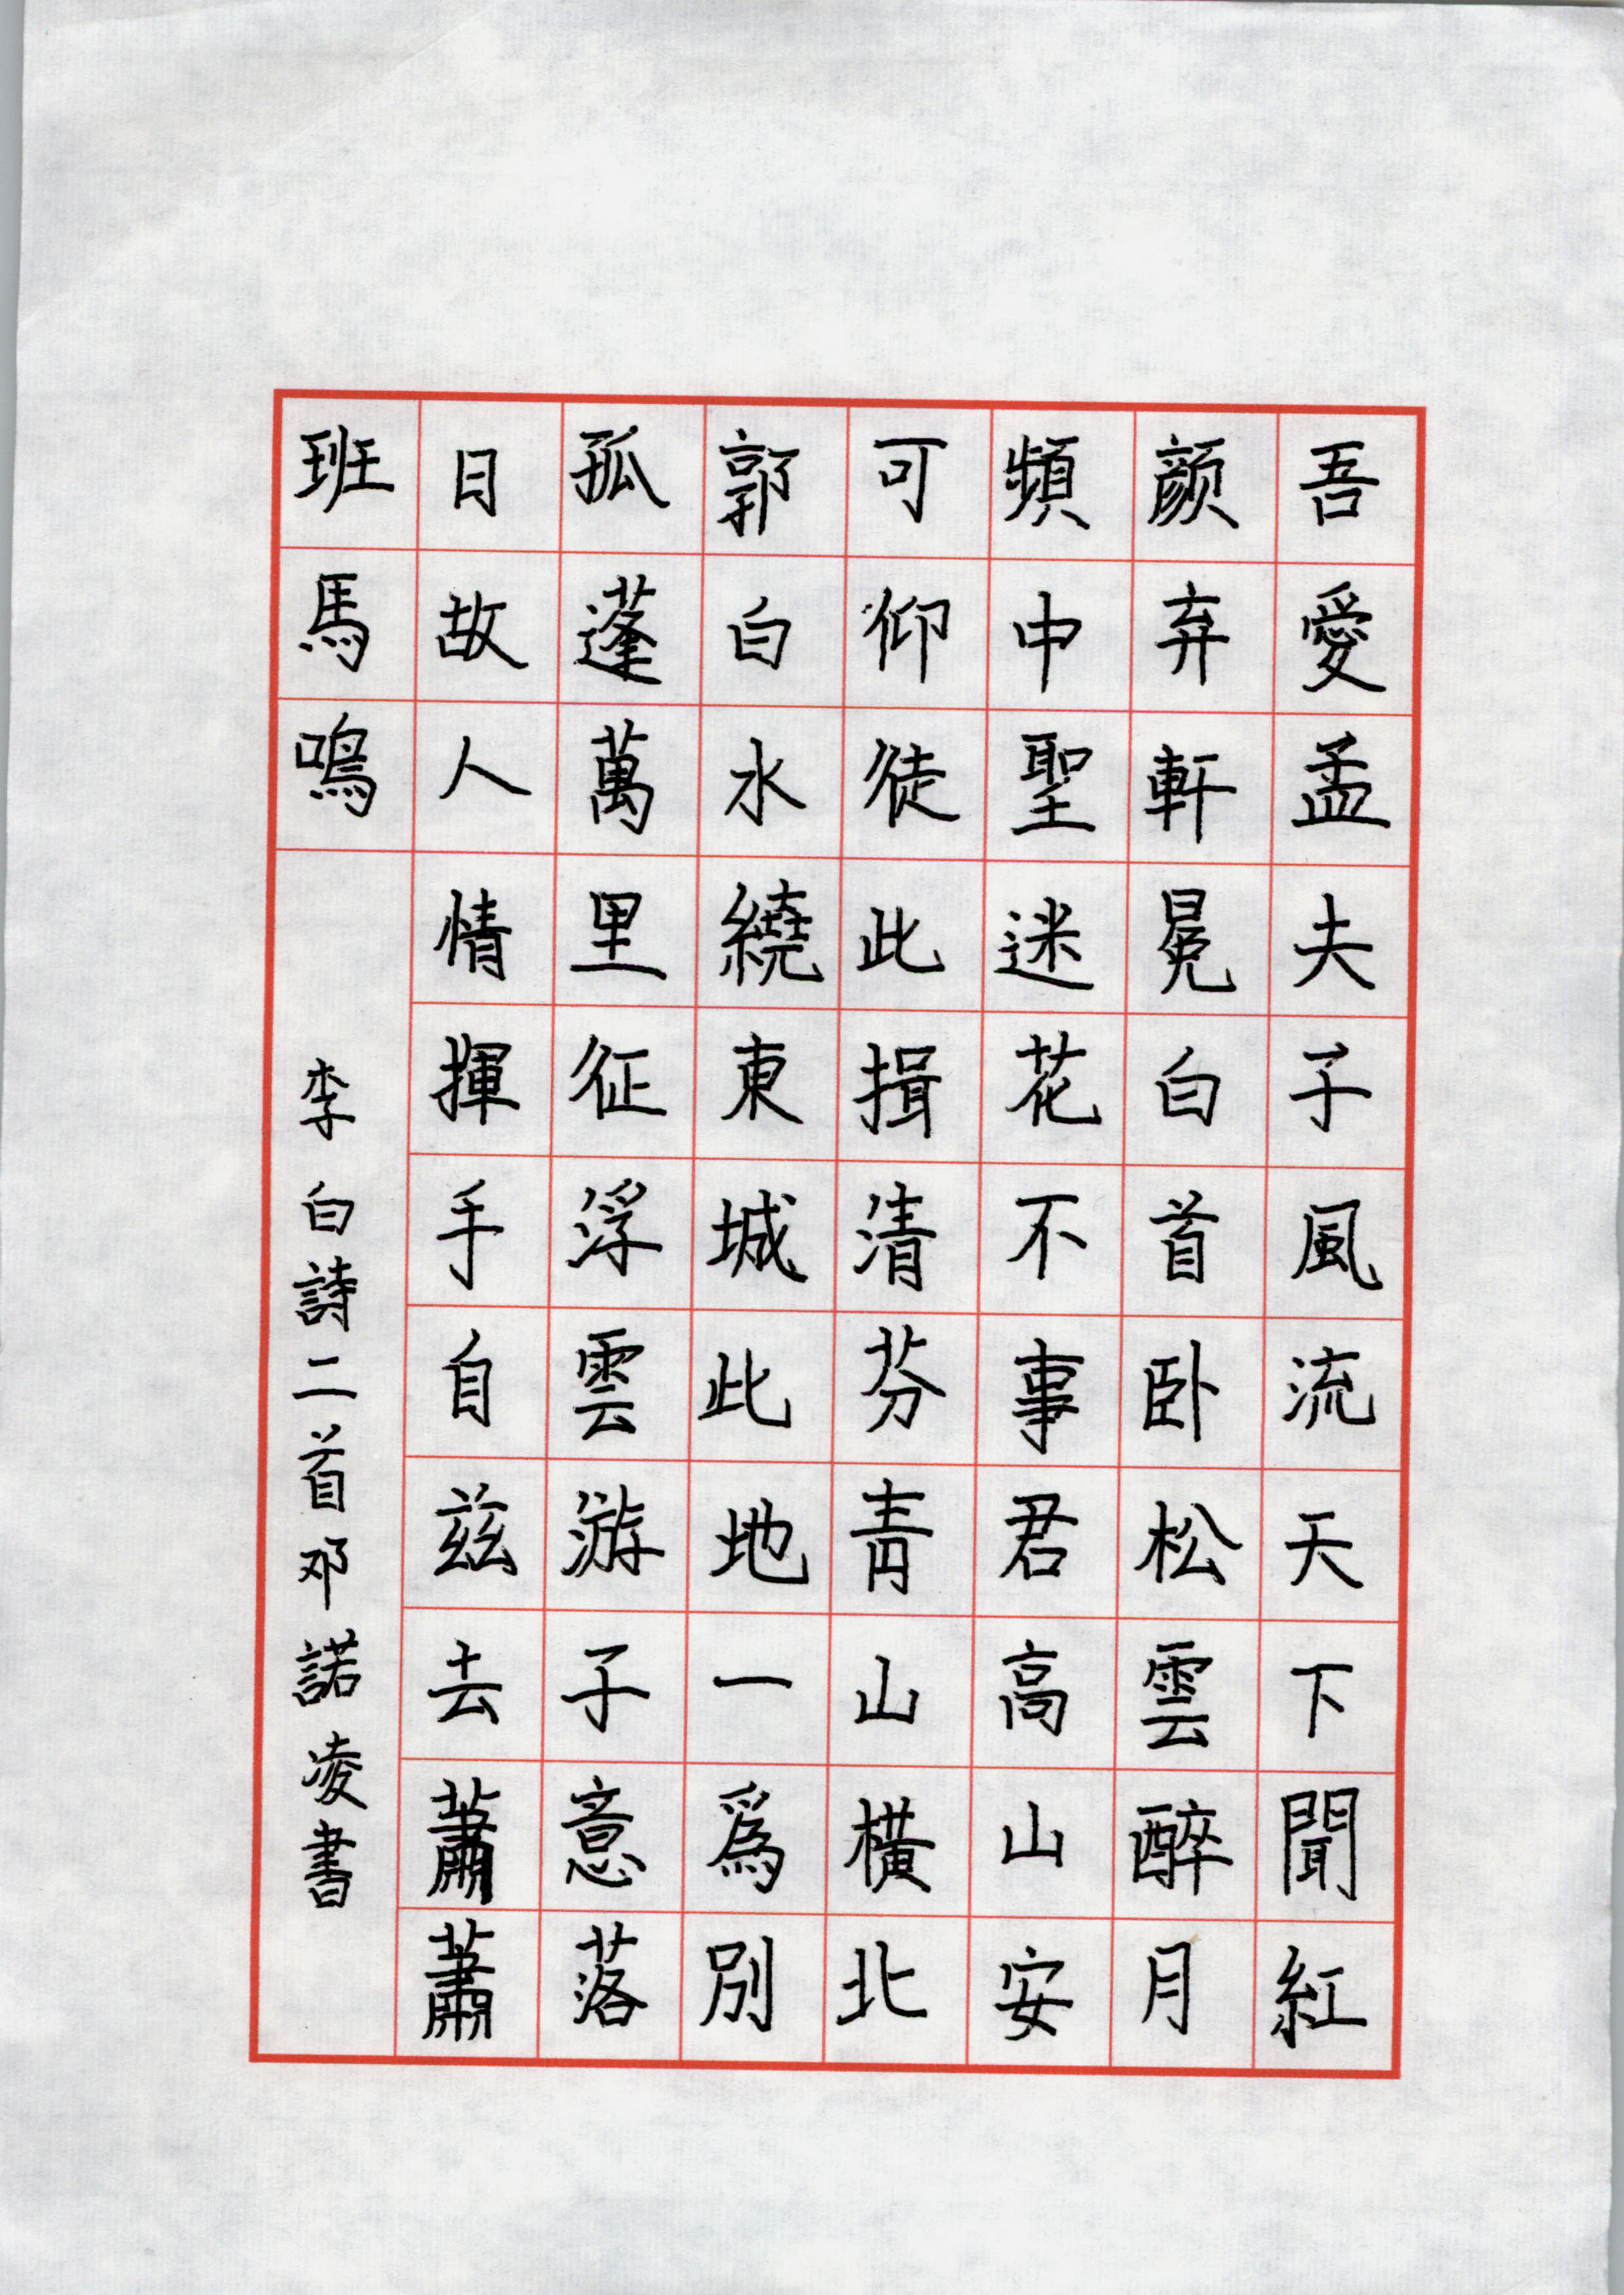 吾愛孟夫子風流天下聞紅
颜弃軒冕白首卧松雲醉月
頻中聖迷花不事君高山安
可仰徒此揖清芬青山横北
郭白水繞東城此地一爲別
孤蓬萬里征浮雲游子意落
日故人情揮手自兹去蕭蕭
班馬鳴
李白詩二首邓諾凌書